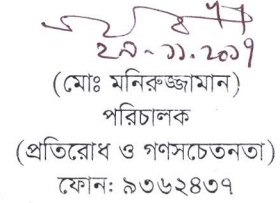 ২৯-১১.২০১৭
(মোঃ মনিরুজ্জামান)
পরিচালক
(প্রতিরোধ ও গণসচেতনতা)
ফোন: ৯৩৬২৪৩৭